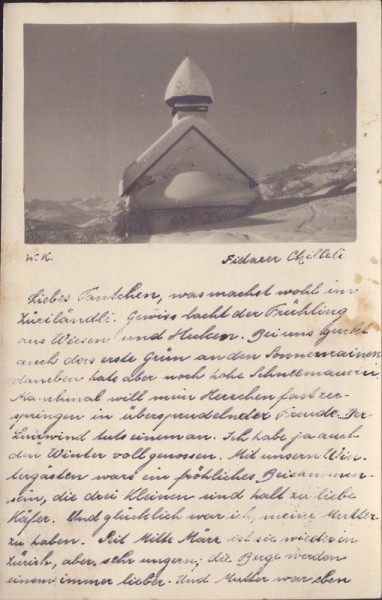 W.K.
Fidazer Chilleli
Liebes Tantchen, was machst wohl im
Züriländli. Gewiss lacht der Frühling
aus Wiesen und Hecken. Bei uns guckt
auch das erste Grün an den Sonnenrainen
daneben hats aber noch hohe Schneemauern.
Manchmal will mein Herzchen fast zer-
springen in übersprudelnder Freude. Der
Lenzwind tuts einem an. Ich habe ja auch
den Winter voll genossen. Mit unsern Win-
tergästen wars ein fröhliches Beisammen-
sein, die drei Kleinen sind halt zu liebe
Käfer. Und glücklich war ich, meine Mutter
zu haben. Seit Mitte März ist sie wieder in
Zürich, aber sehr ungern; die Berge werden
einem immer lieber. Und Mutter war eben